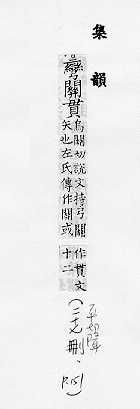 集韻
彎關貫
烏關切說文持弓關
矢也左氏傳作關或
作貫文
十二
刪
P.151)